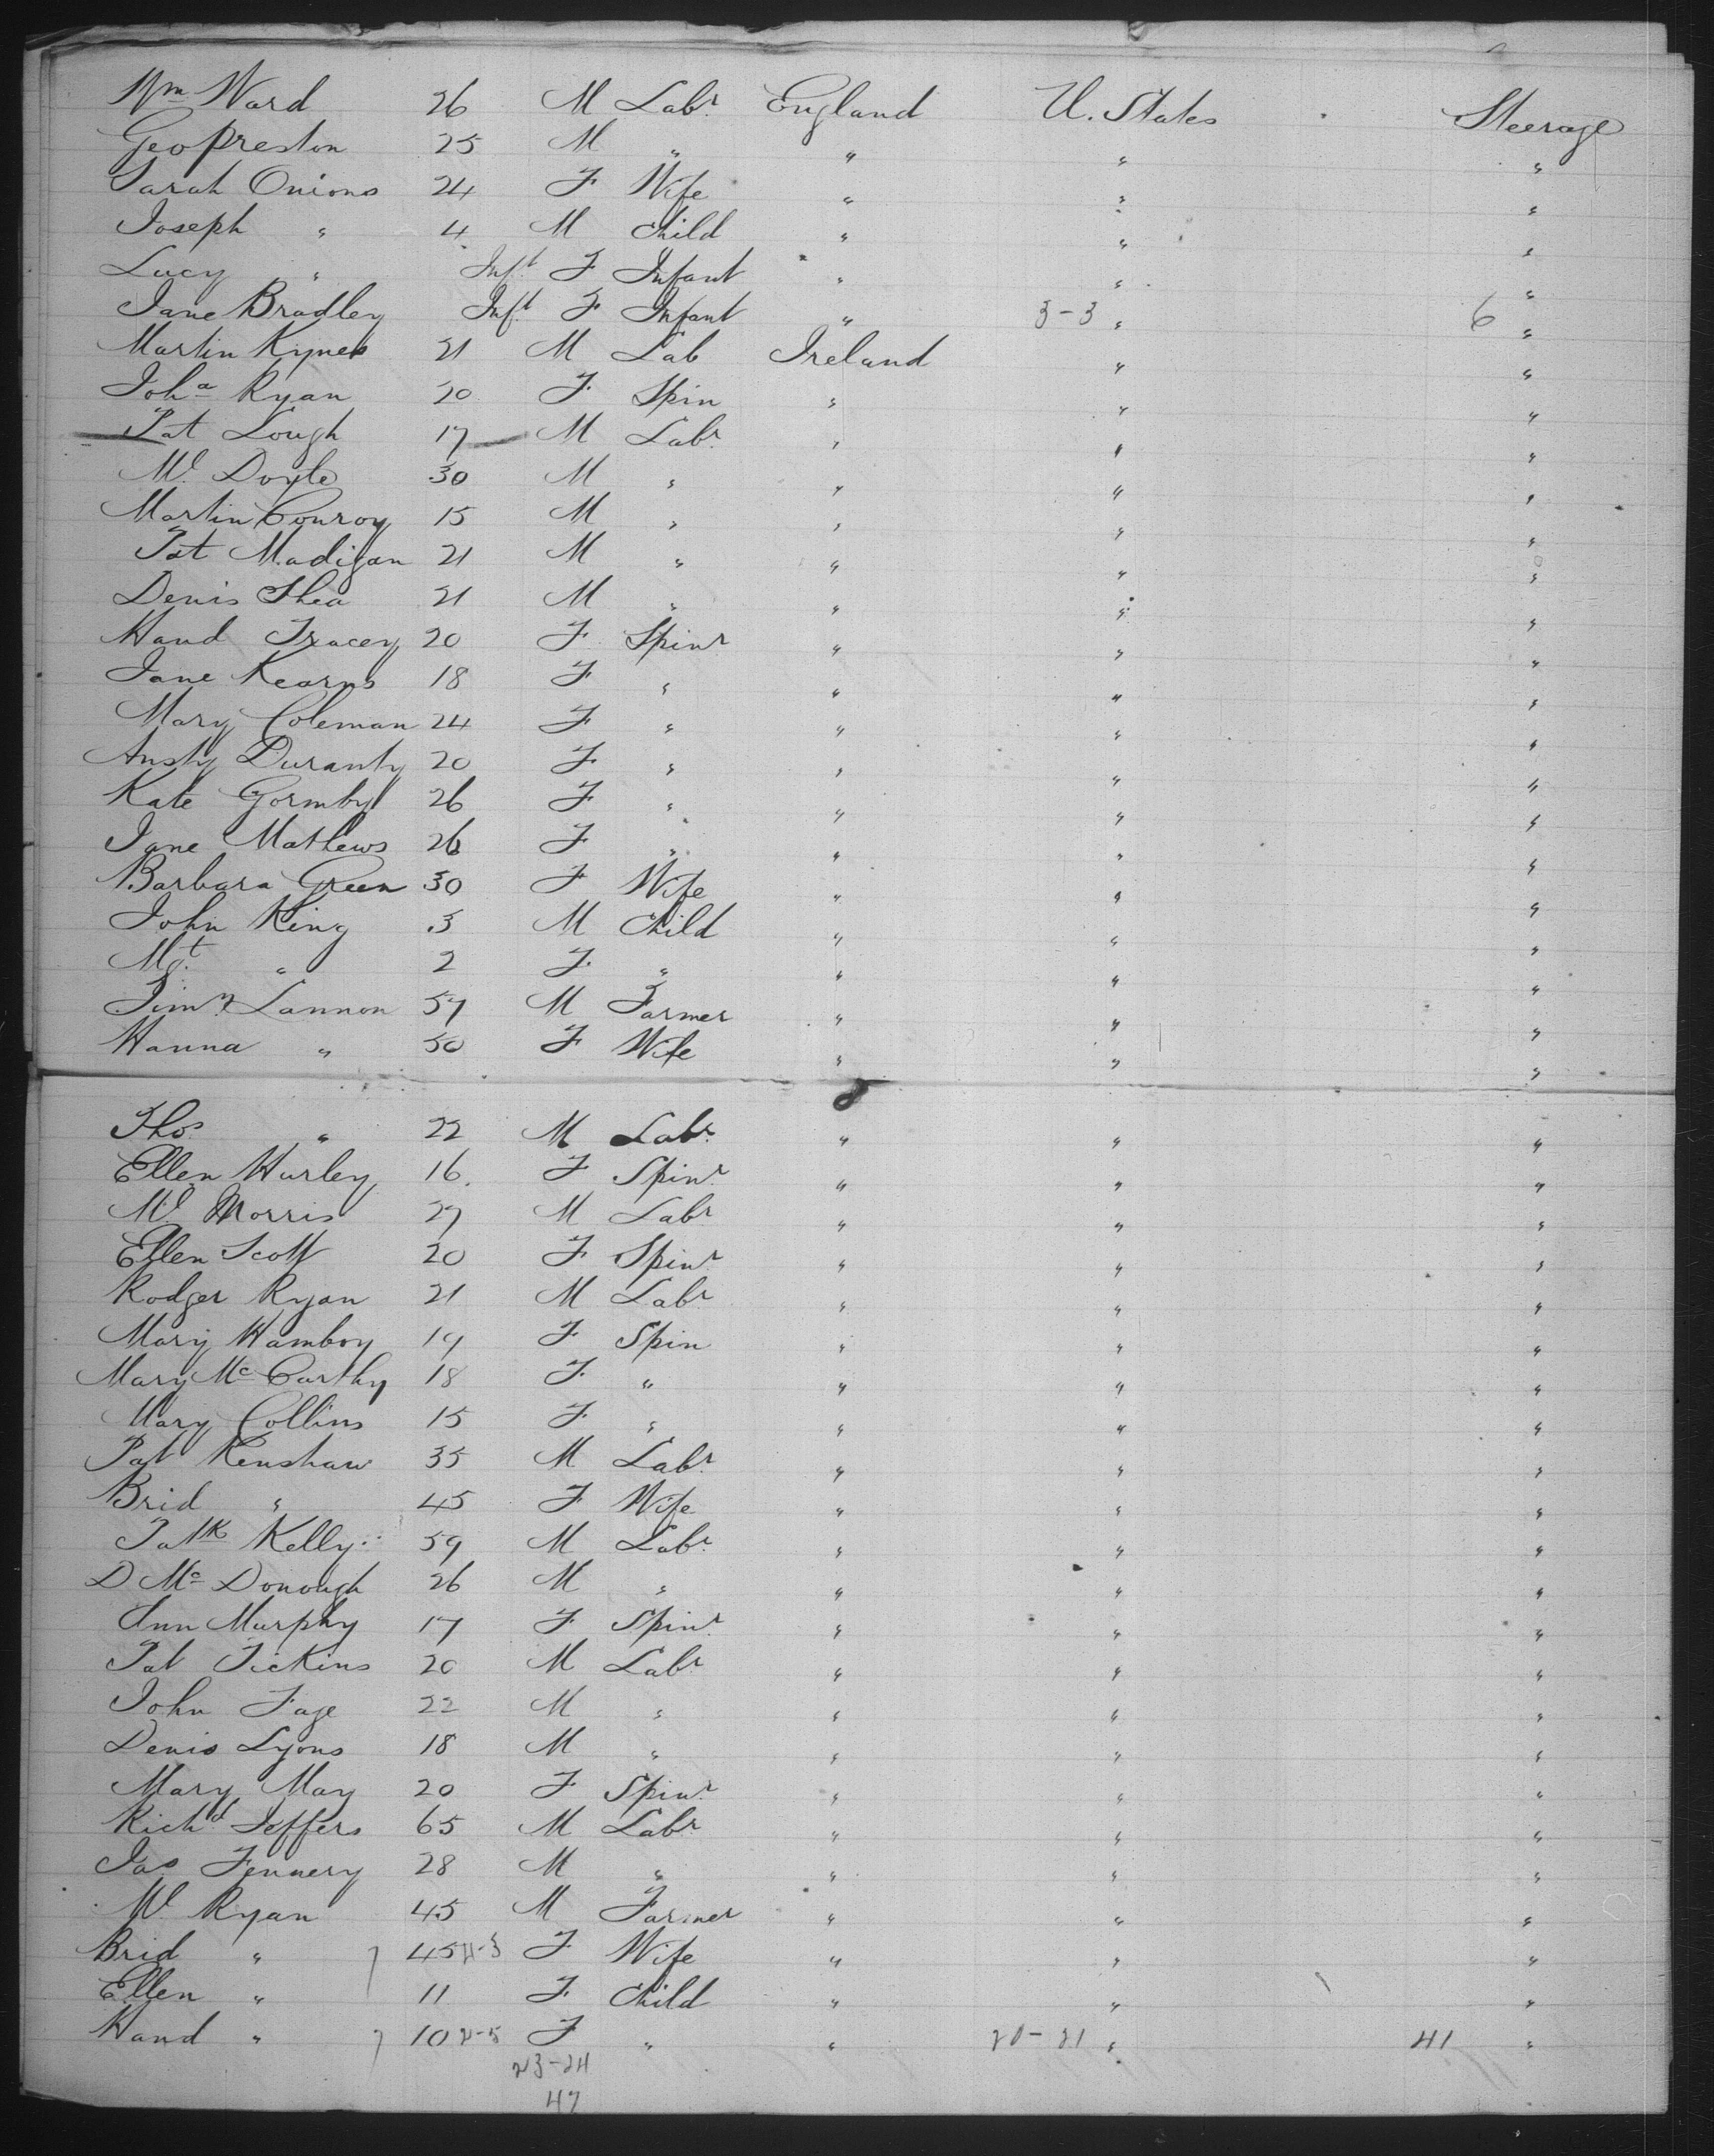 Wm Ward 26 M Labr England U. States Steerage
Geo Preston 25 M " " " "
Sarah Onions 24 F Wife " " "
Joseph " 4 M Child " " "
Lucy " Inft F Infant " " "
Jane Bradley Inft F Infant " 3-3 " 6 "
Martin Kynes 21 M Lab Ireland " "
Joha Ryan 20 F Spin " " "
Pat Lough 17 M Labr " " "
Ml Doyle 30 M " " " "
Martin Conroy 15 M " " " "
Pat Madigan 21 M " " " "
Denis Shea 21 M " " " "
Hand Tracey 20 F Spinr " " "
Jane Kearns 18 F " " " "
Mary Coleman 24 F " " " "
Ansty Duranty 20 F " " " "
Kate Gormby 26 F " " " "
Jane Mathews 26 F " " " "
Barbara Green 30 F Wife " " "
John King 3 M Child " " "
Mgt " 2 F " " " "
Timy Lannon 57 M Farmer " " "
Hanna " 50 F Wife " " "
Thos " 22 M Labr " " "
Ellen Hurley 16 F Spinr " " "
Ml Morris 27 M Labr " " "
Ellen Scott 20 F Spinr " " "
Rodger Ryan 21 M Labr " " "
Mary Hamboy 19 F Spin " " "
Mary McCarthy 18 F " " " "
Mary Collins 15 F " " " "
Pat Renshaw 35 M Labr " " "
Brid " 45 F Wife " " "
Patk Kelly 59 M Labr " " "
D McDonough 26 M " " " "
Ann Murphy 17 F Spinr " " "
Pat Tickins 20 M Labr " " "
John Fage 22 M " " " "
Denis Lyons 18 M " " " "
Mary May 20 F Spinr " " "
Richd Jeffers 65 M Labr " " "
Jas Fennery 28 M " " " "
Ml Ryan 45 M Farmer " " "
Brid " 45 2-3 F Wife " " "
Ellen " 11 F Child " " "
Hand " 10 2-5 F " " 20-21 " 41 "
23-24
47